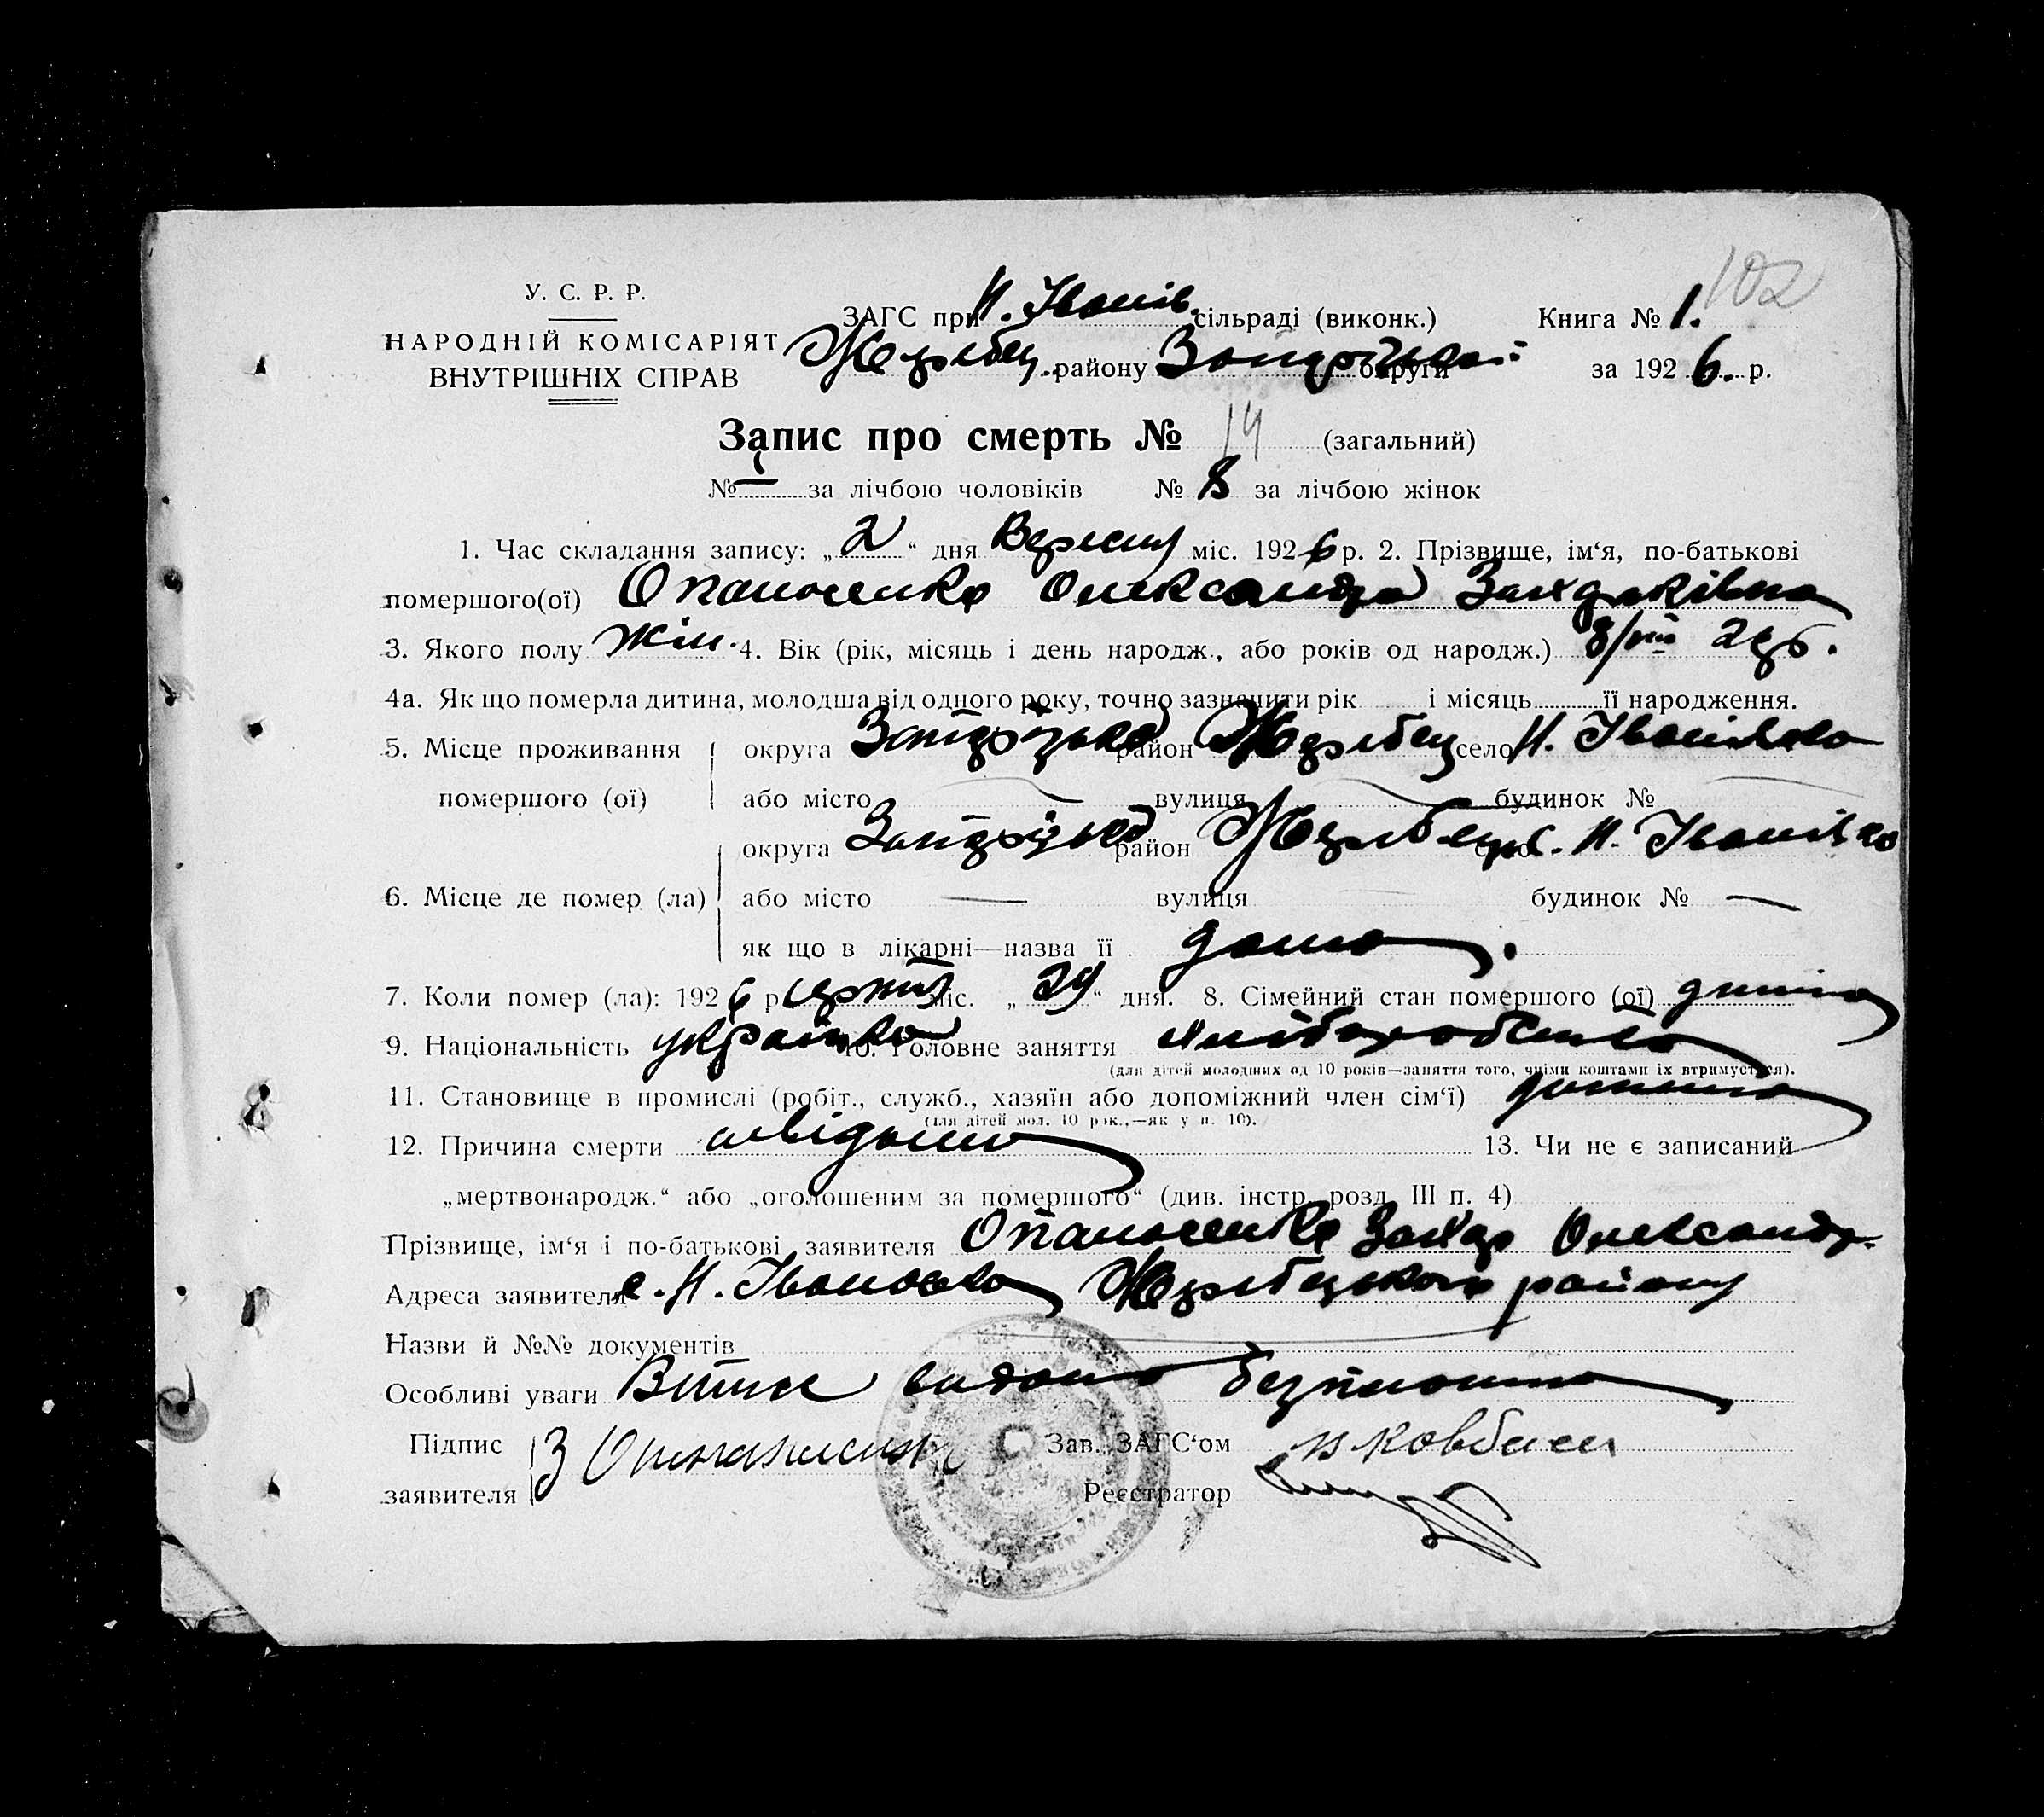 102
У. С. Р. Р.
НАРОДНІЙ КОМІСАРІЯТ
ВНУТРІШНІХ СПРАВ
ЗАГС при Н. Іванів. сільраді (виконк.) Книга № 1.
Жеребец. району округи за 1926. р.
Запис про смерть № 14 (загальний)
№ — за лічбою чоловіків № 8 за лічбою жінок
1. Час складання запису: „2“ дня Вересня міс. 1926 р. 2. Прізвище, ім‘я, по-батькові
помершого(ої) Опанасенко Олександра Захарківна
3. Якого полу Жін. 4. Вік (рік, місяць і день народж., або років од народж.) 8/VIII
4а. Як що померла дитина, молодша від одного року, точно зазначити рік і місяць її народження.
5. Місце проживання округа Запорізька район Жеребец село Н. Іванівка
помершого (ої) або місто вулиця будинок №
округа Запорізька район Жеребец с. Н. Іванівка
6. Місце де помер (ла) або місто — вулиця будинок № —
як що в лікарні—назва її дома.
7. Коли помер (ла): 1926 р серпня міс. „24“ дня. 8. Сімейний стан помершого (ої) дитина
9. Національність українка 10. Головне заняття хліборобство
(для дітей молодших од 10 років—заняття того, чиїми коштами їх втримується).
11. Становище в промислі (робіт., служб., хазяїн або допоміжний член сім‘ї)
(для дітей мол. 10 рок.,—як у п. 10).
12. Причина смерти невідомо 13. Чи не є записаний
„мертвонародж.“ або „оголошеним за помершого“ (див. інстр. розд. III п. 4)
Прізвище, ім‘я і по-батькові заявителя Опанасенко Захар Олександр.
Адреса заявителя с. Н. Іванівка Жеребецького району
Назви й №№ документів
Особливі уваги Витяг видано безплатно
Підпис З Опанасенко Зав. ЗАГС‘ом Ковбаса
заявителя Реєстратор